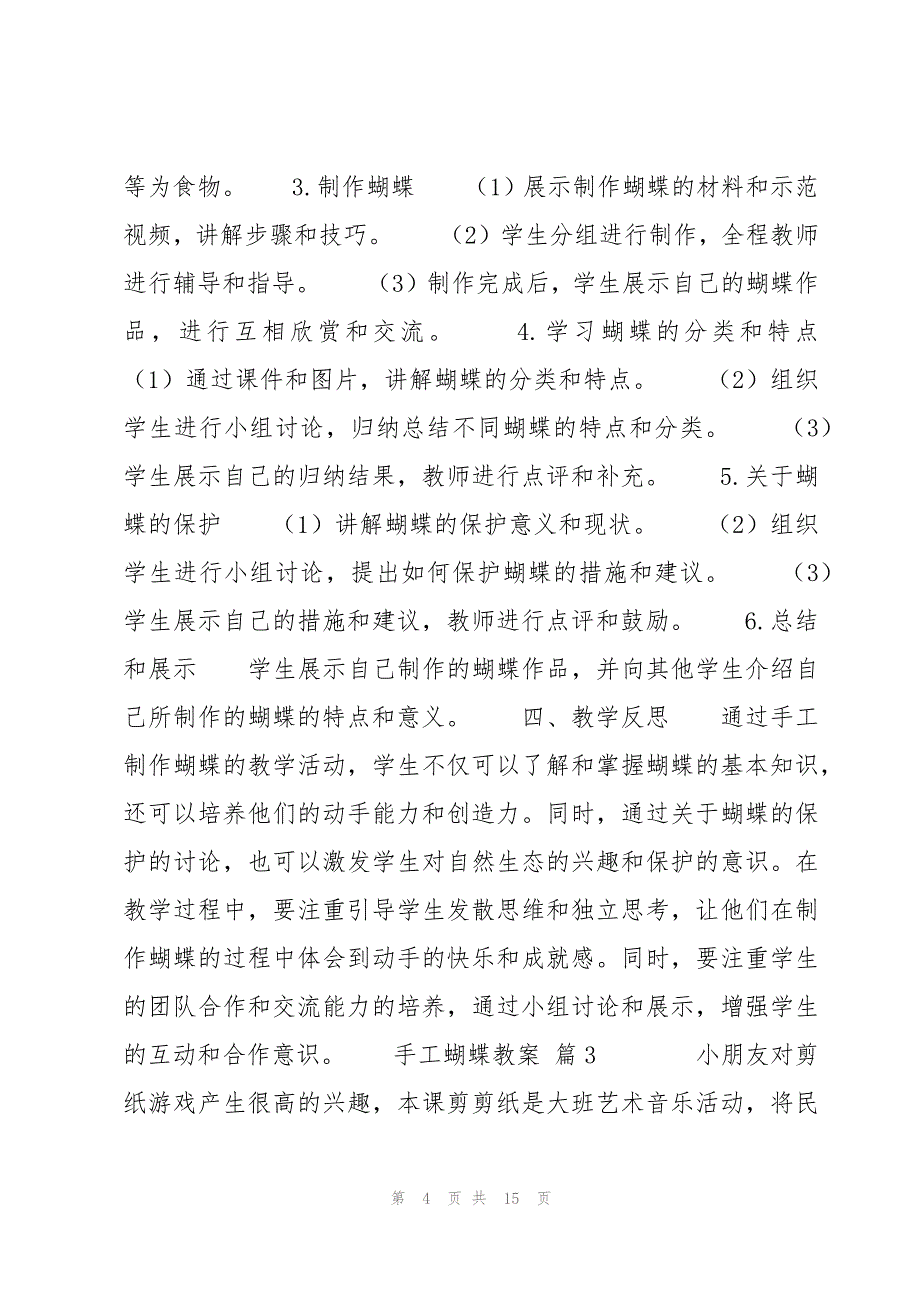 等为食物。　　3.制作蝴蝶　　（1）展示制作蝴蝶的材料和示范
视频，讲解步骤和技巧。　　（2）学生分组进行制作，全程教师
进行辅导和指导。　　（3）制作完成后，学生展示自己的蝴蝶作
品，进行互相欣赏和交流。　　4.学习蝴蝶的分类和特点
（1）通过课件和图片，讲解蝴蝶的分类和特点。　　（2）组织
学生进行小组讨论，归纳总结不同蝴蝶的特点和分类。　　（3）
学生展示自己的归纳结果，教师进行点评和补充。　　5.关于蝴
蝶的保护　　（1）讲解蝴蝶的保护意义和现状。　　（2）组织
学生进行小组讨论，提出如何保护蝴蝶的措施和建议。　　（3）
学生展示自己的措施和建议，教师进行点评和鼓励。　　6.总结
和展示　　学生展示自己制作的蝴蝶作品，并向其他学生介绍自
己所制作的蝴蝶的特点和意义。　　四、教学反思　　通过手工
制作蝴蝶的教学活动，学生不仅可以了解和掌握蝴蝶的基本知识，
还可以培养他们的动手能力和创造力。同时，通过关于蝴蝶的保
护的讨论，也可以激发学生对自然生态的兴趣和保护的意识。在
教学过程中，要注重引导学生发散思维和独立思考，让他们在制
作蝴蝶的过程中体会到动手的快乐和成就感。同时，要注重学生
的团队合作和交流能力的培养，通过小组讨论和展示，增强学生
的互动和合作意识。　　手工蝴蝶教案 篇3　　　　小朋友对剪
纸游戏产生很高的兴趣，本课剪剪纸是大班艺术音乐活动，将民
第 4 页 共 15 页